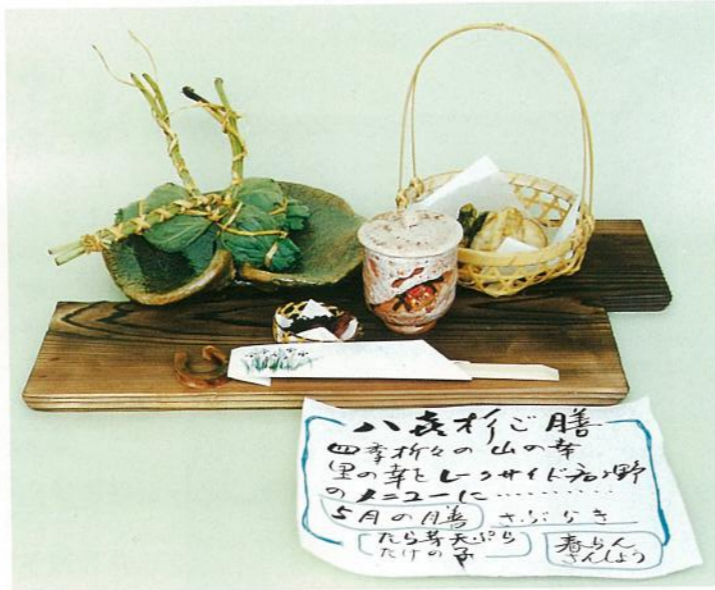 八㐂杉ご膳
四季折々の山の幸
里の幸をレークサイド君ヶ野
のメニューに………
5月の膳
たら芽天ぷら
たけの子
春らん
さんしょう